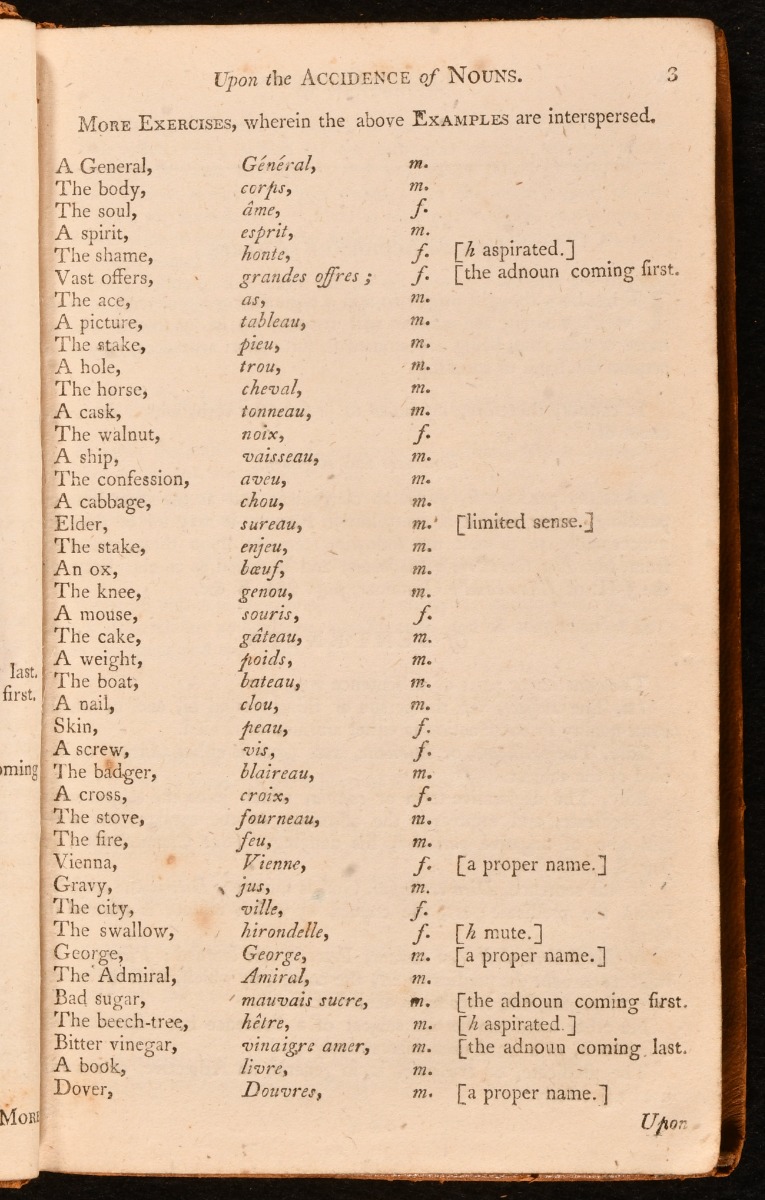 Upon the ACCIDENCE of NOUNS. 3
MORE EXERCISES, wherein the above EXAMPLES are interspersed.
A General, Général, m.
The body, corps, m.
The soul, âme, f.
A spirit, esprit, m.
The shame, honte, f. [h aspirated.]
Vast offers, grandes offres ; f. [the adnoun coming first.
The ace, as, m.
A picture, tableau, m.
The stake, pieu, m.
A hole, trou, m.
The horse, cheval, m.
A cask, tonneau, m.
The walnut, noix, f.
A ship, vaisseau, m.
The confession, aveu, m.
A cabbage, chou, m.
Elder, sureau, m. [limited sense.]
The stake, enjeu, m.
An ox, bœuf, m.
The knee, genou, m.
A mouse, souris, f.
The cake, gâteau, m.
A weight, poids, m.
The boat, bateau, m.
A nail, clou, m.
Skin, peau, f.
A screw, vis, f.
The badger, blaireau, m.
A cross, croix, f.
The stove, fourneau, m.
The fire, feu, m.
Vienna, Vienne, f. [a proper name.]
Gravy, jus, m.
The city, ville, f.
The swallow, hirondelle, f. [h mute.]
George, George, m. [a proper name.]
The Admiral, Amiral, m.
Bad sugar, mauvais sucre, m. [the adnoun coming first.
The beech-tree, hêtre, m. [h aspirated.]
Bitter vinegar, vinaigre amer, m. [the adnoun coming last.
A book, livre, m.
Dover, Douvres, m. [a proper name.]
Upon
last.
first.
oming
MORE